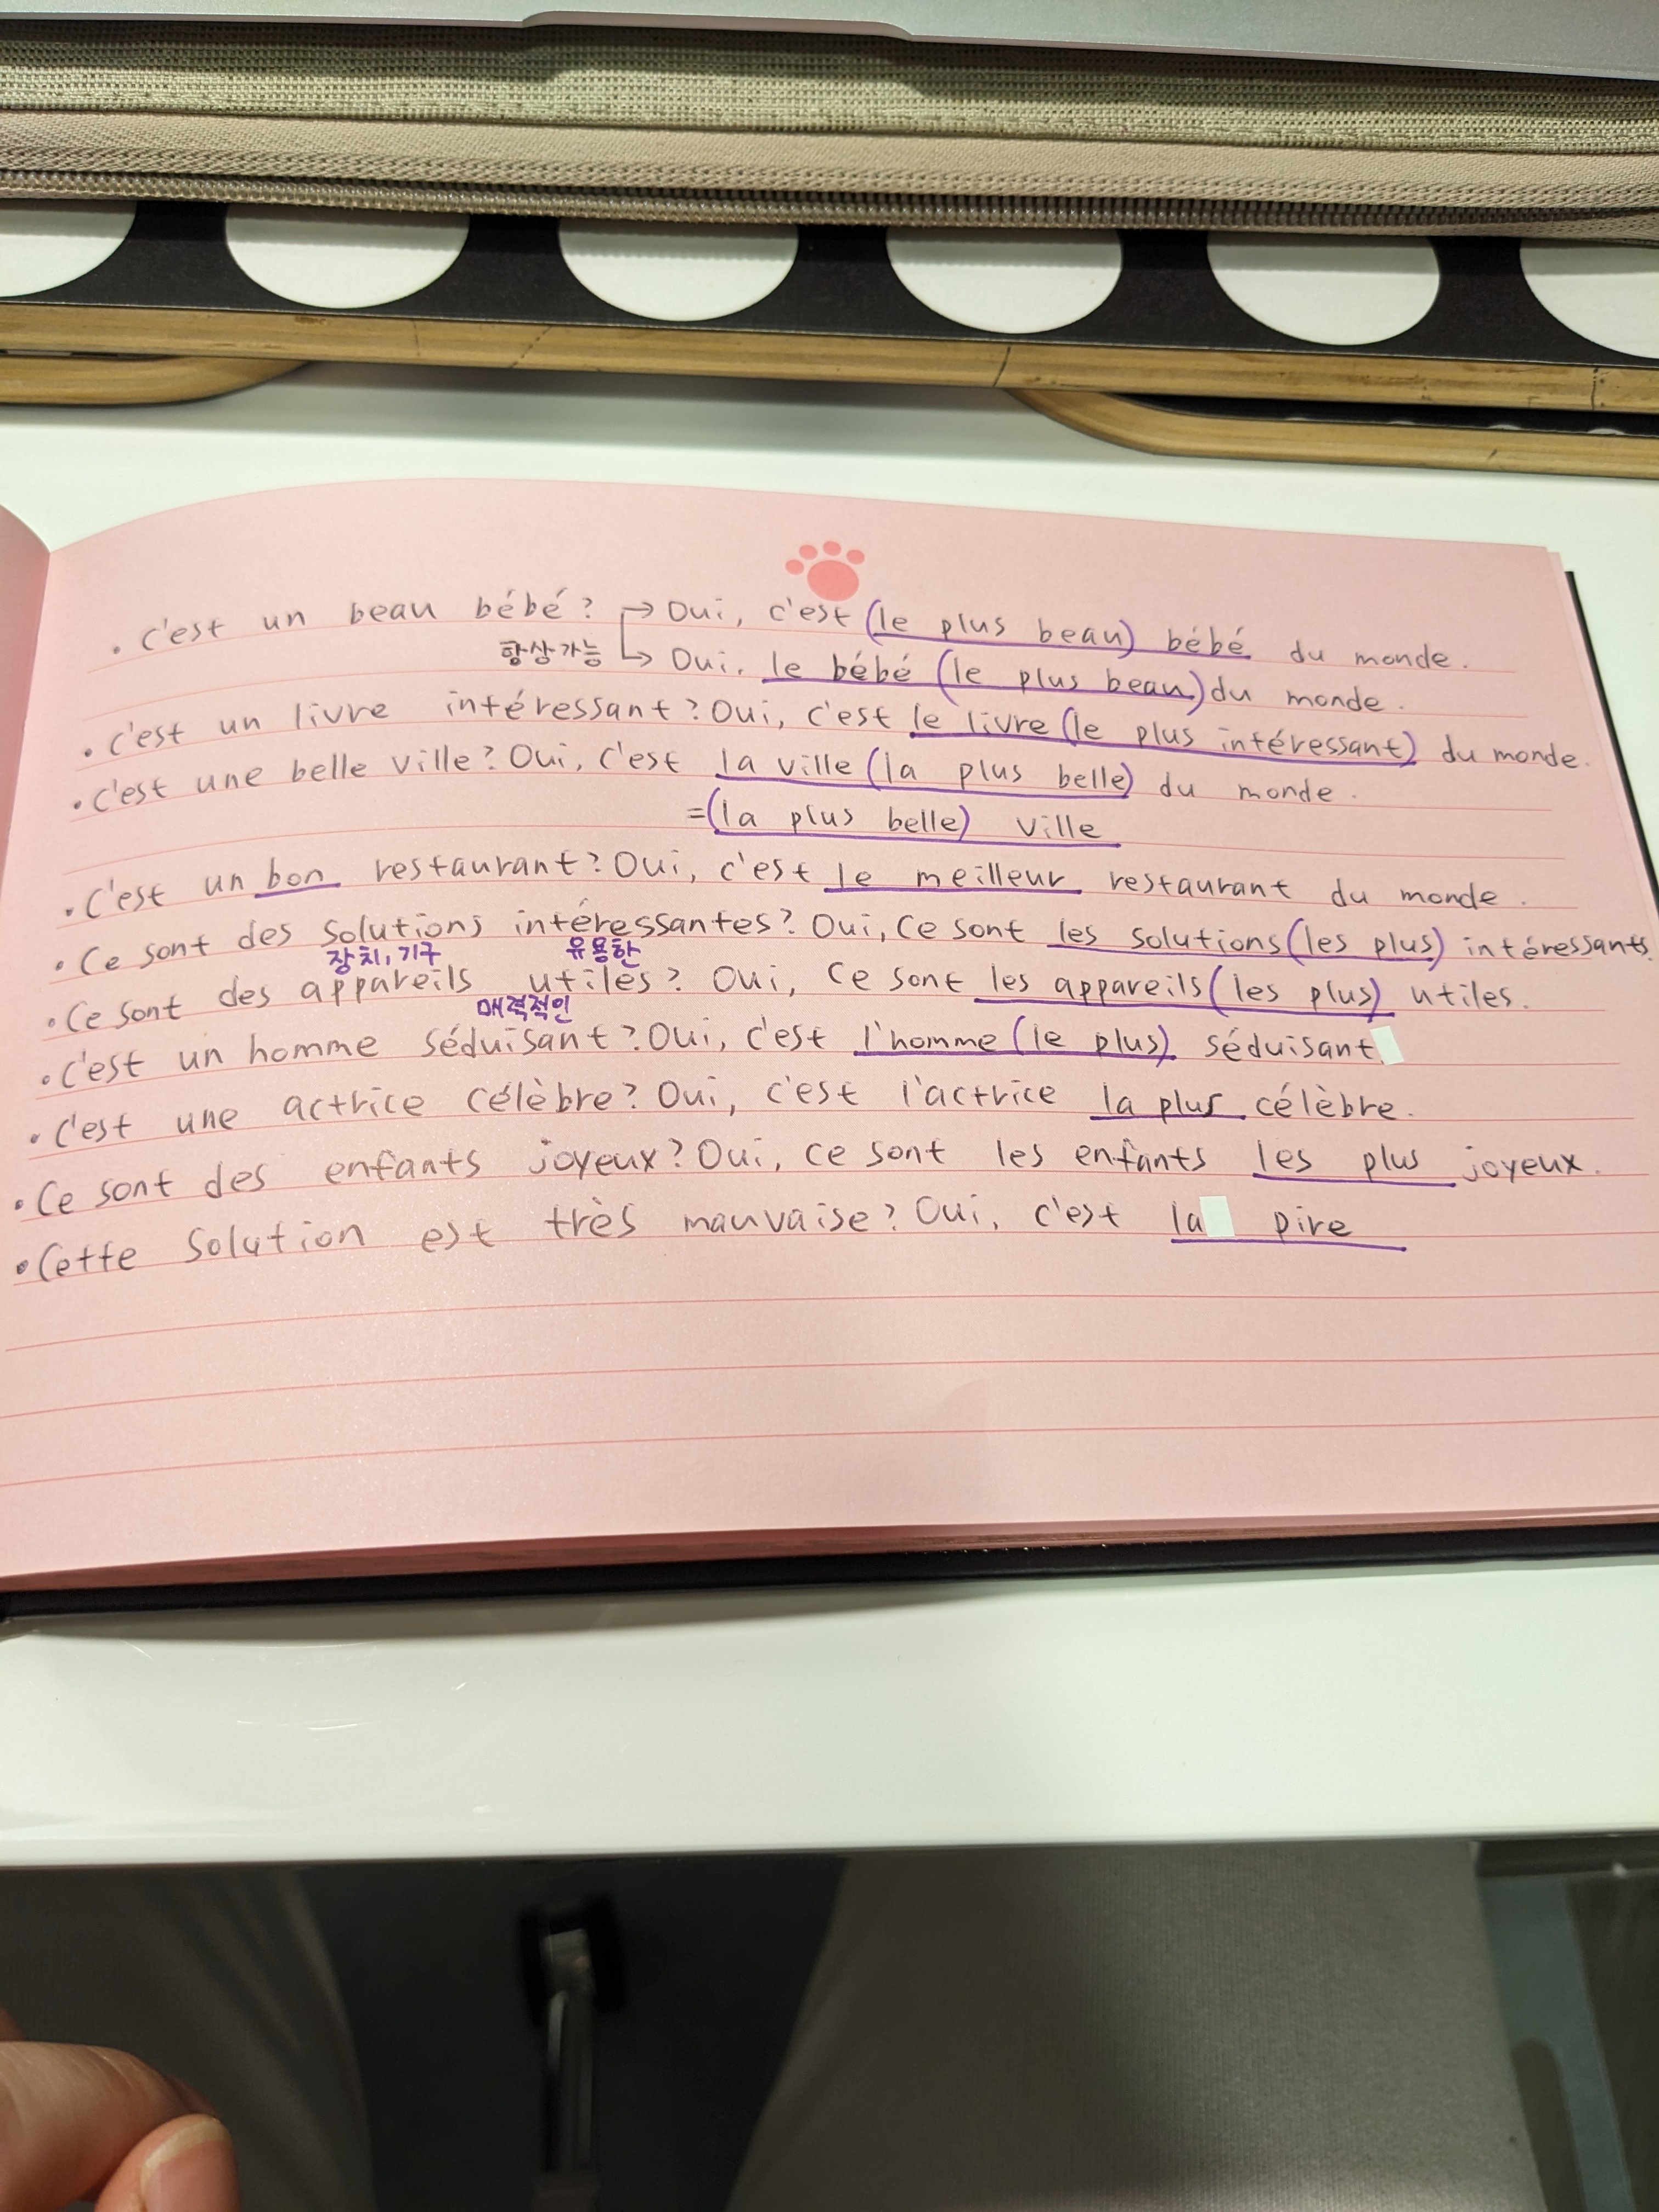 · C'est un beau bébé? → Oui, c'est (le plus beau) bébé du monde.
항상가능 ↳ Oui, le bébé (le plus beau) du monde.
· C'est un livre intéressant? Oui, c'est le livre (le plus intéressant) du monde.
· C'est une belle ville? Oui, c'est la ville (la plus belle) du monde.
=(la plus belle) ville
· C'est un bon restaurant? Oui, c'est le meilleur restaurant du monde.
· Ce sont des solutions intéressantes? Oui, Ce sont les solutions (les plus) intéressants.
장치, 기구 유용한
· Ce sont des appareils utiles? Oui, Ce sont les appareils (les plus) utiles.
매력적인
· C'est un homme séduisant? Oui, c'est l'homme (le plus) séduisant
· C'est une actrice célèbre? Oui, c'est l'actrice la plus célèbre.
· Ce sont des enfants joyeux? Oui, ce sont les enfants les plus joyeux.
· Cette solution est très mauvaise? Oui, c'est la pire